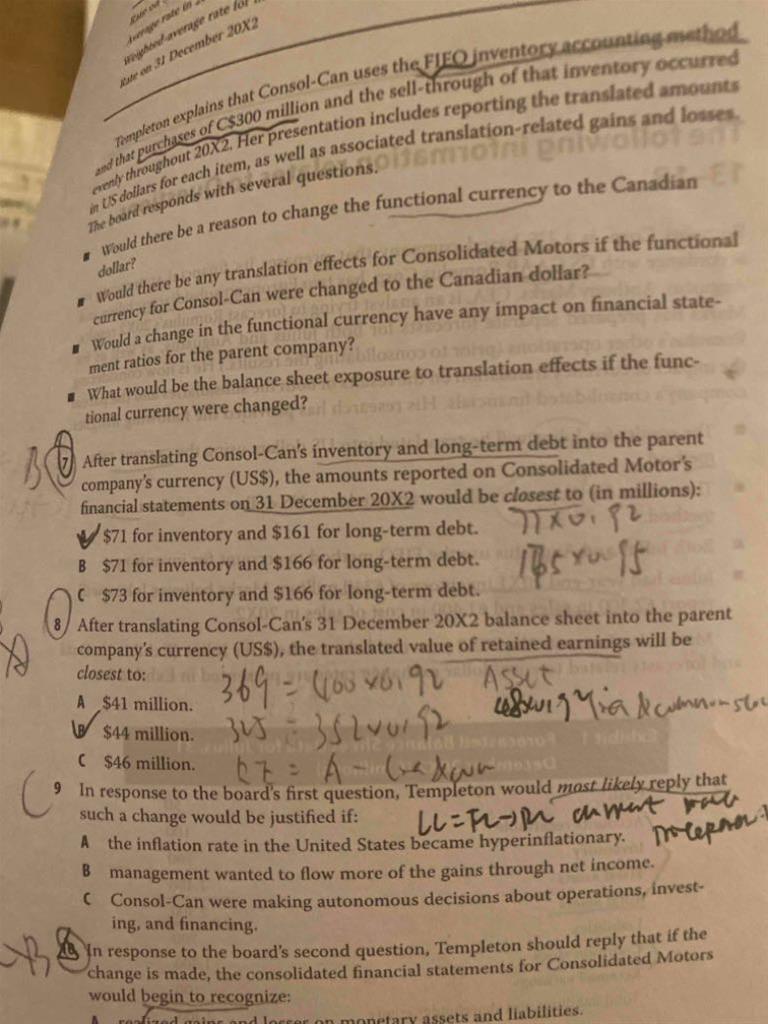 Rate on
Average rate in
Weighted-average rate for
Rate on 31 December 20X2
Templeton explains that Consol-Can uses the FIFO inventory accounting method
and that purchases of C$300 million and the sell-through of that inventory occurred
evenly throughout 20X2. Her presentation includes reporting the translated amounts
in US dollars for each item, as well as associated translation-related gains and losses.
The board responds with several questions.
■ Would there be a reason to change the functional currency to the Canadian
dollar?
■ Would there be any translation effects for Consolidated Motors if the functional
currency for Consol-Can were changed to the Canadian dollar?
■ Would a change in the functional currency have any impact on financial state-
ment ratios for the parent company?
■ What would be the balance sheet exposure to translation effects if the func-
tional currency were changed?
B 7 After translating Consol-Can's inventory and long-term debt into the parent
company's currency (US$), the amounts reported on Consolidated Motor's
financial statements on 31 December 20X2 would be closest to (in millions):
A $71 for inventory and $161 for long-term debt. 77x0.92
B $71 for inventory and $166 for long-term debt. 175x0.95
C $73 for inventory and $166 for long-term debt.
8 After translating Consol-Can's 31 December 20X2 balance sheet into the parent
company's currency (US$), the translated value of retained earnings will be
closest to: 369 = 400x0.92 Asset
A $41 million.
B $44 million.
C $46 million.
9 In response to the board's first question, Templeton would most likely reply that
such a change would be justified if: current rate
A the inflation rate in the United States became hyperinflationary.
B management wanted to flow more of the gains through net income.
C Consol-Can were making autonomous decisions about operations, invest-
ing, and financing.
B 10 In response to the board's second question, Templeton should reply that if the
change is made, the consolidated financial statements for Consolidated Motors
would begin to recognize:
A realized gains and losses on monetary assets and liabilities.